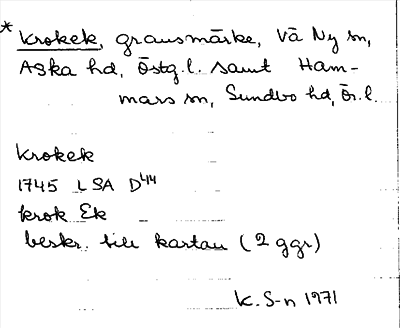 * Krokek, gränsmärke, Vä Ny sn,
Aska hd, Östg.l. samt Ham-
mars sn, Sundbo hd, Ör.l.
Krokek
1745 LSA D44
krok Ek
beskr. till kartan (2 ggr)
K. S-n 1971